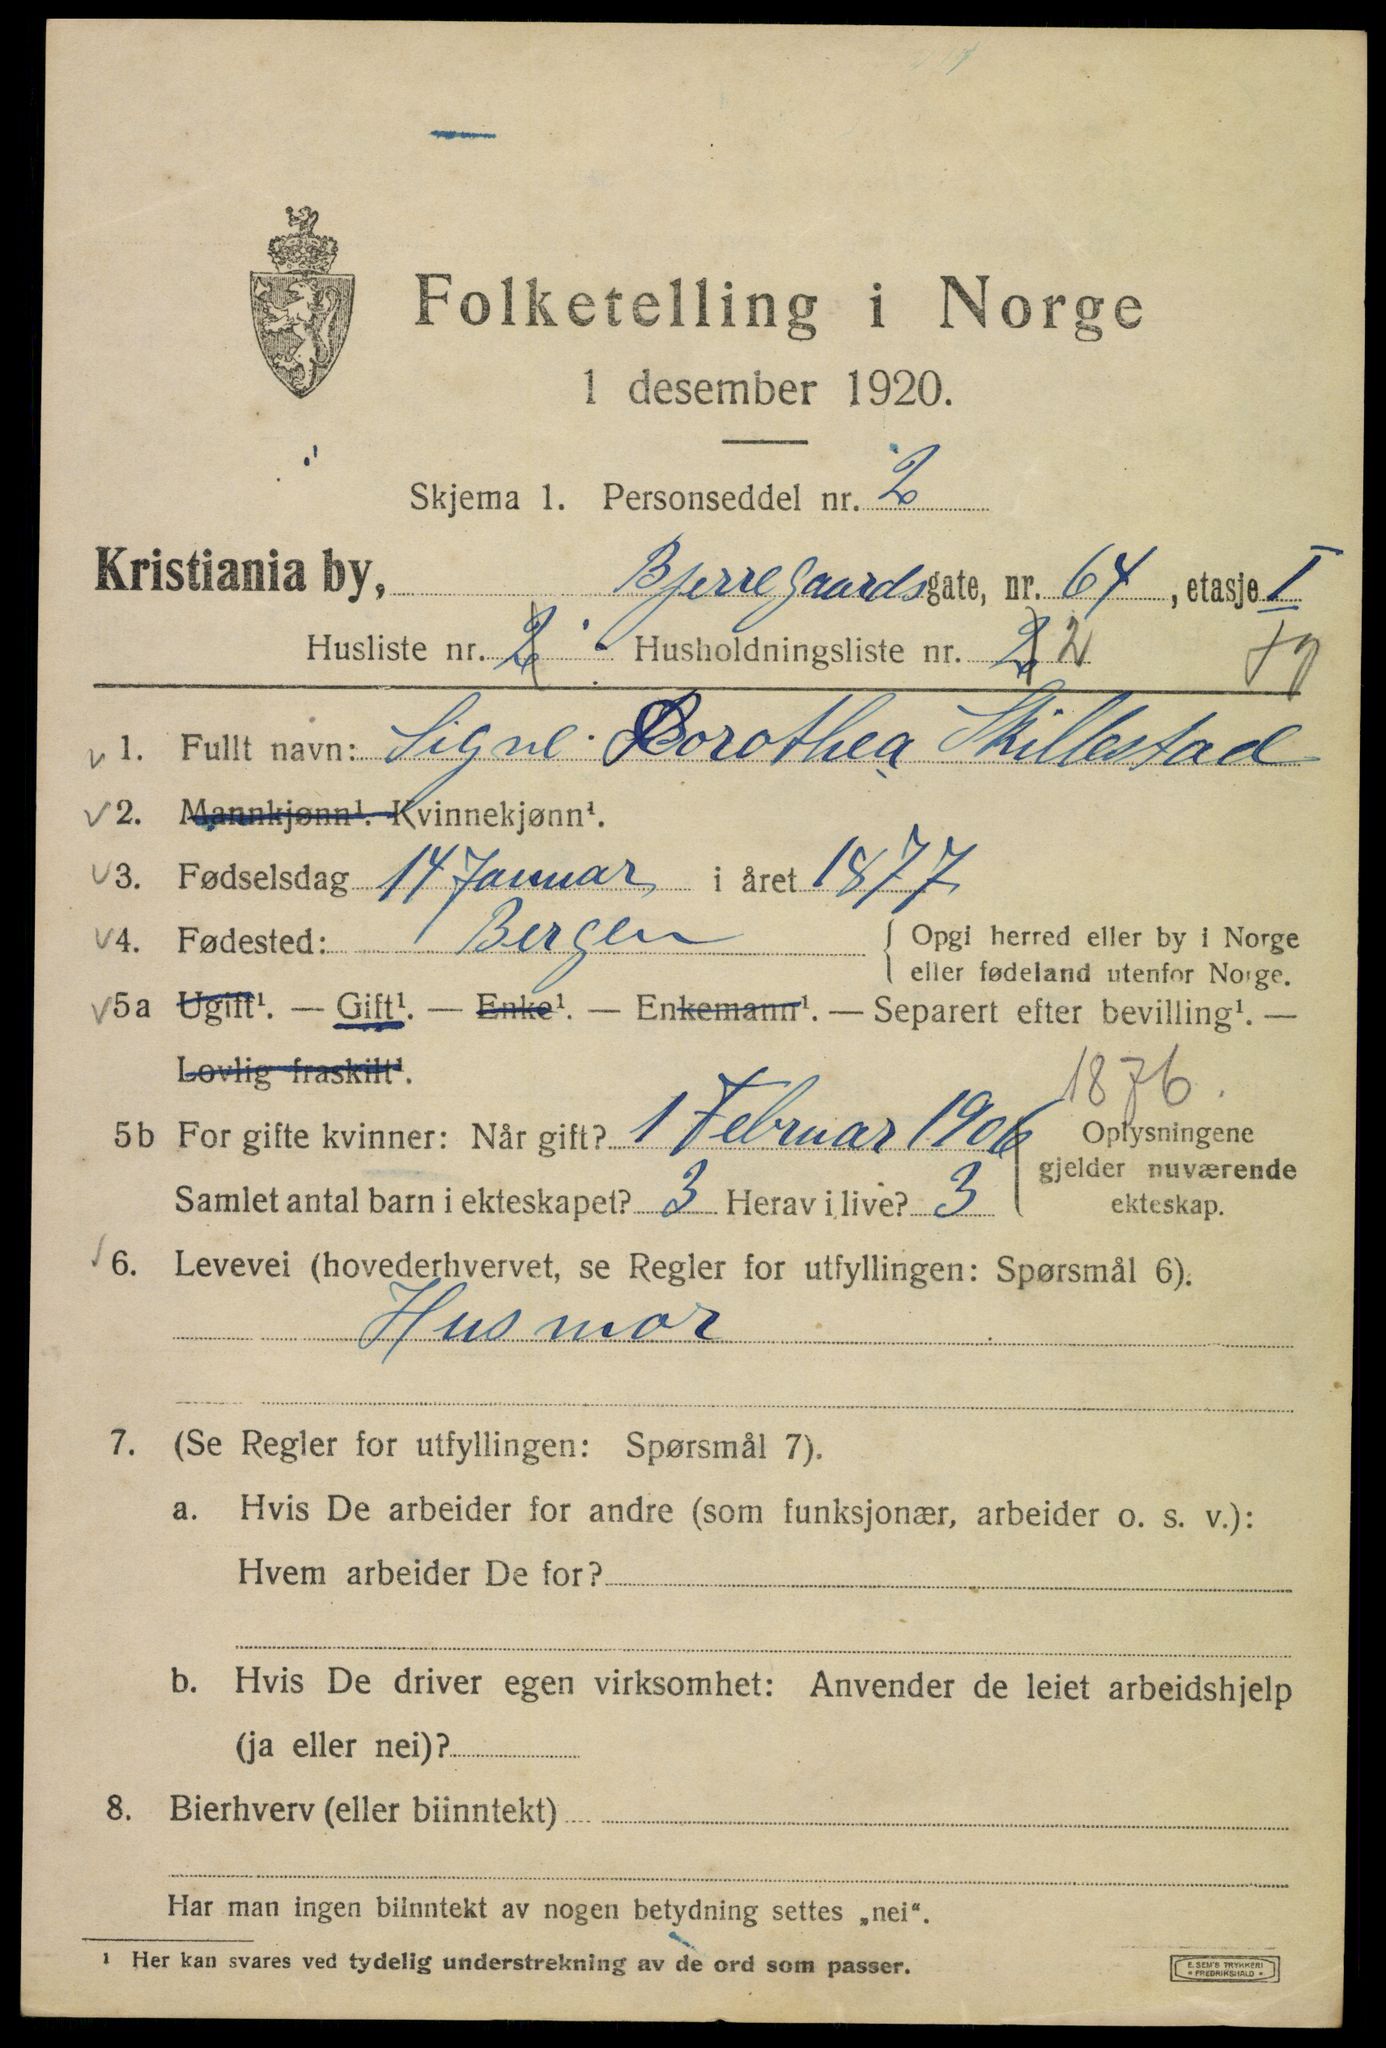 Folketelling i Norge
1 desember 1920.
Skjema 1. Personseddel nr. 2
Kristiania by, Bjerregaardsgate, nr. 64, etasje I
Husliste nr. 2 Husholdningsliste nr. 2 2
1. Fullt navn: Signe Dorothea Skillestad
2. Mannkjønn¹. Kvinnekjønn¹.
3. Fødselsdag 14 Januar i året 1877
4. Fødested: Bergen { Opgi herred eller by i Norge
eller fødeland utenfor Norge.
5a Ugift¹. — Gift¹. — Enke¹. — Enkemann¹. — Separert efter bevilling¹. —
Lovlig fraskilt¹.
1876.
5b For gifte kvinner: Når gift? 1 Februar 1906 Oplysningene
gjelder nuværende
Samlet antal barn i ekteskapet? 3 Herav i live? 3 ekteskap.
6. Levevei (hovederhvervet, se Regler for utfyllingen: Spørsmål 6).
Husmor
7. (Se Regler for utfyllingen: Spørsmål 7).
a. Hvis De arbeider for andre (som funksjonær, arbeider o. s. v.):
Hvem arbeider De for?
b. Hvis De driver egen virksomhet: Anvender de leiet arbeidshjelp
(ja eller nei)?
8. Bierhverv (eller biinntekt)
Har man ingen biinntekt av nogen betydning settes „nei“.
¹ Her kan svares ved tydelig understrekning av de ord som passer.
E. SEM'S TRYKKERI
FREDRIKSHALD